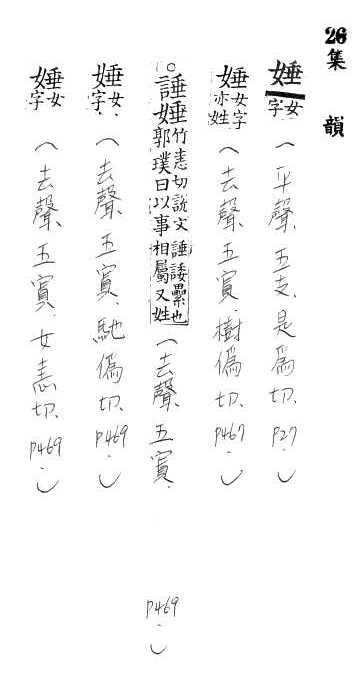 26集韻
娷女字（平聲、五支、是為切、P27.）
娷女字亦姓（去聲、五寘、樹偽切、P467.）
。諈娷竹恚切說文諈諉纍也郭璞曰以事相屬又姓（去聲、五寘、P469.）
娷女字（去聲、五寘、馳偽切、P469.）
娷女字（去聲、五寘、女恚切、P469.）